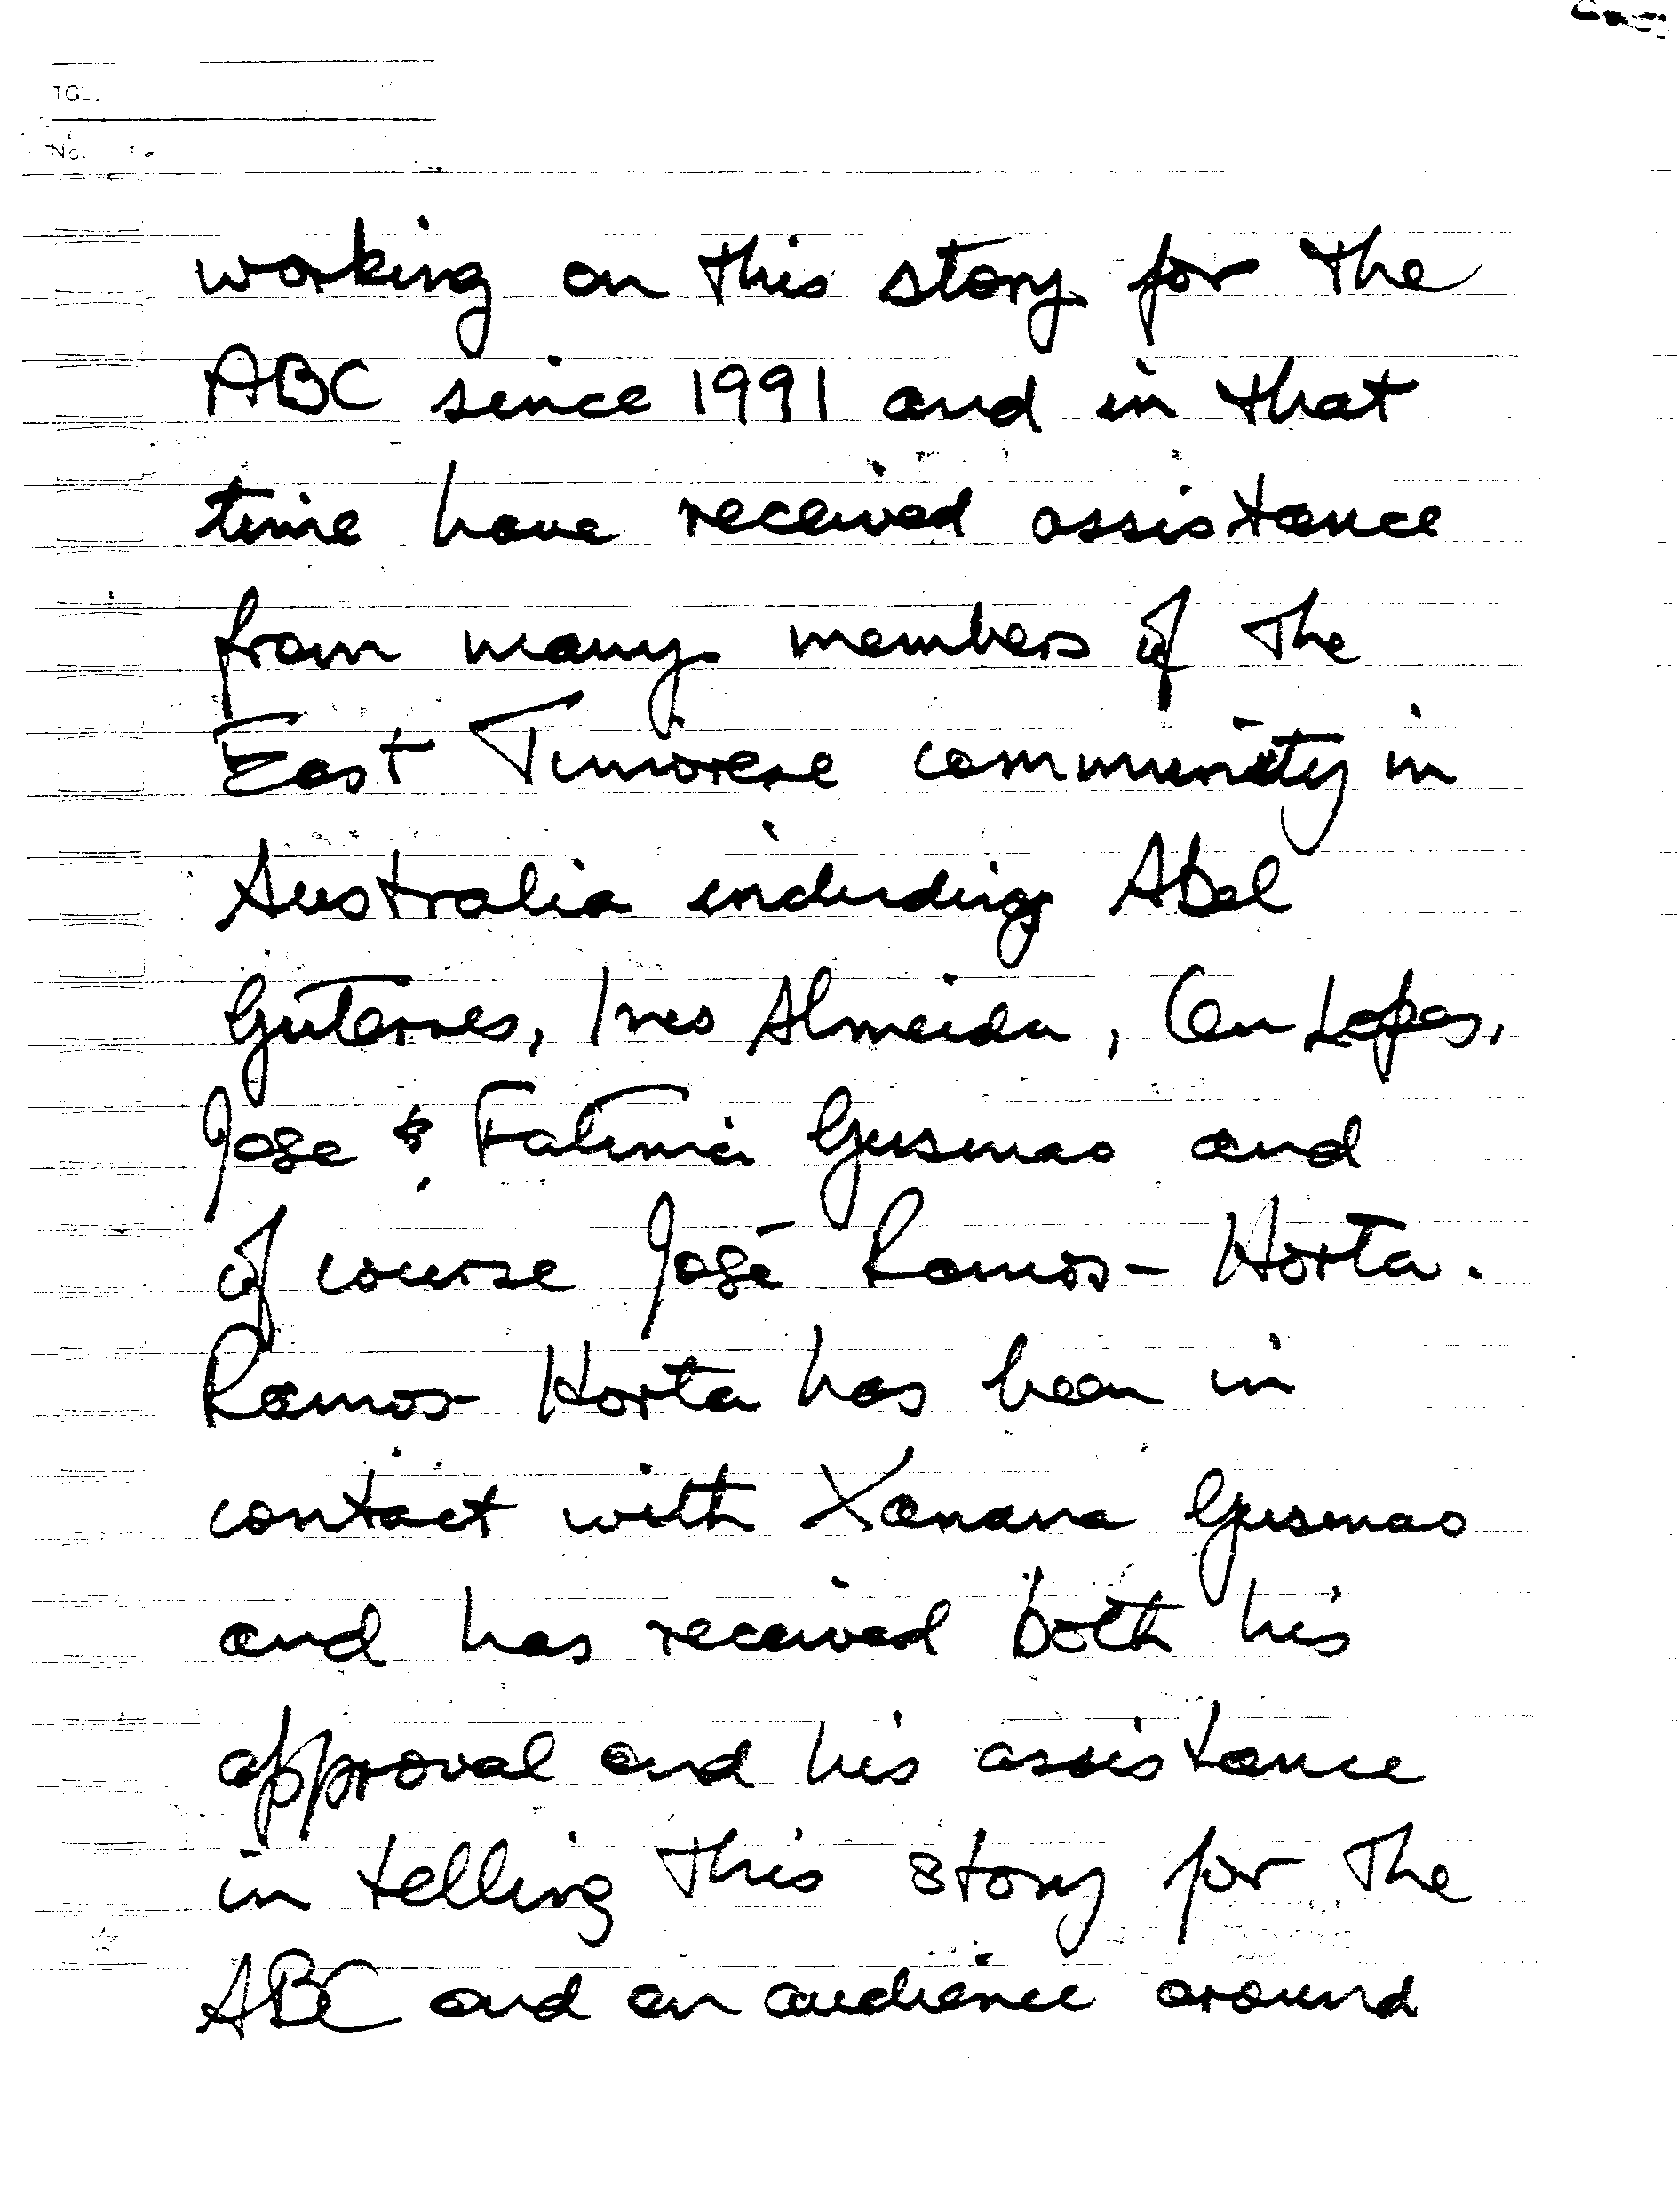 TGL.
No.
working on this story for the
ABC since 1991 and in that
time have received assistance
from many members of the
East Timorese community in
Australia including Abel
Guterres, Ines Almeida, Lopes,
Jose & Fatima Gusmao and
of course José Ramos-Horta.
Ramos-Horta has been in
contact with Xanana Gusmao
and has received both his
approval and his assistance
in telling this story for the
ABC and an audience around